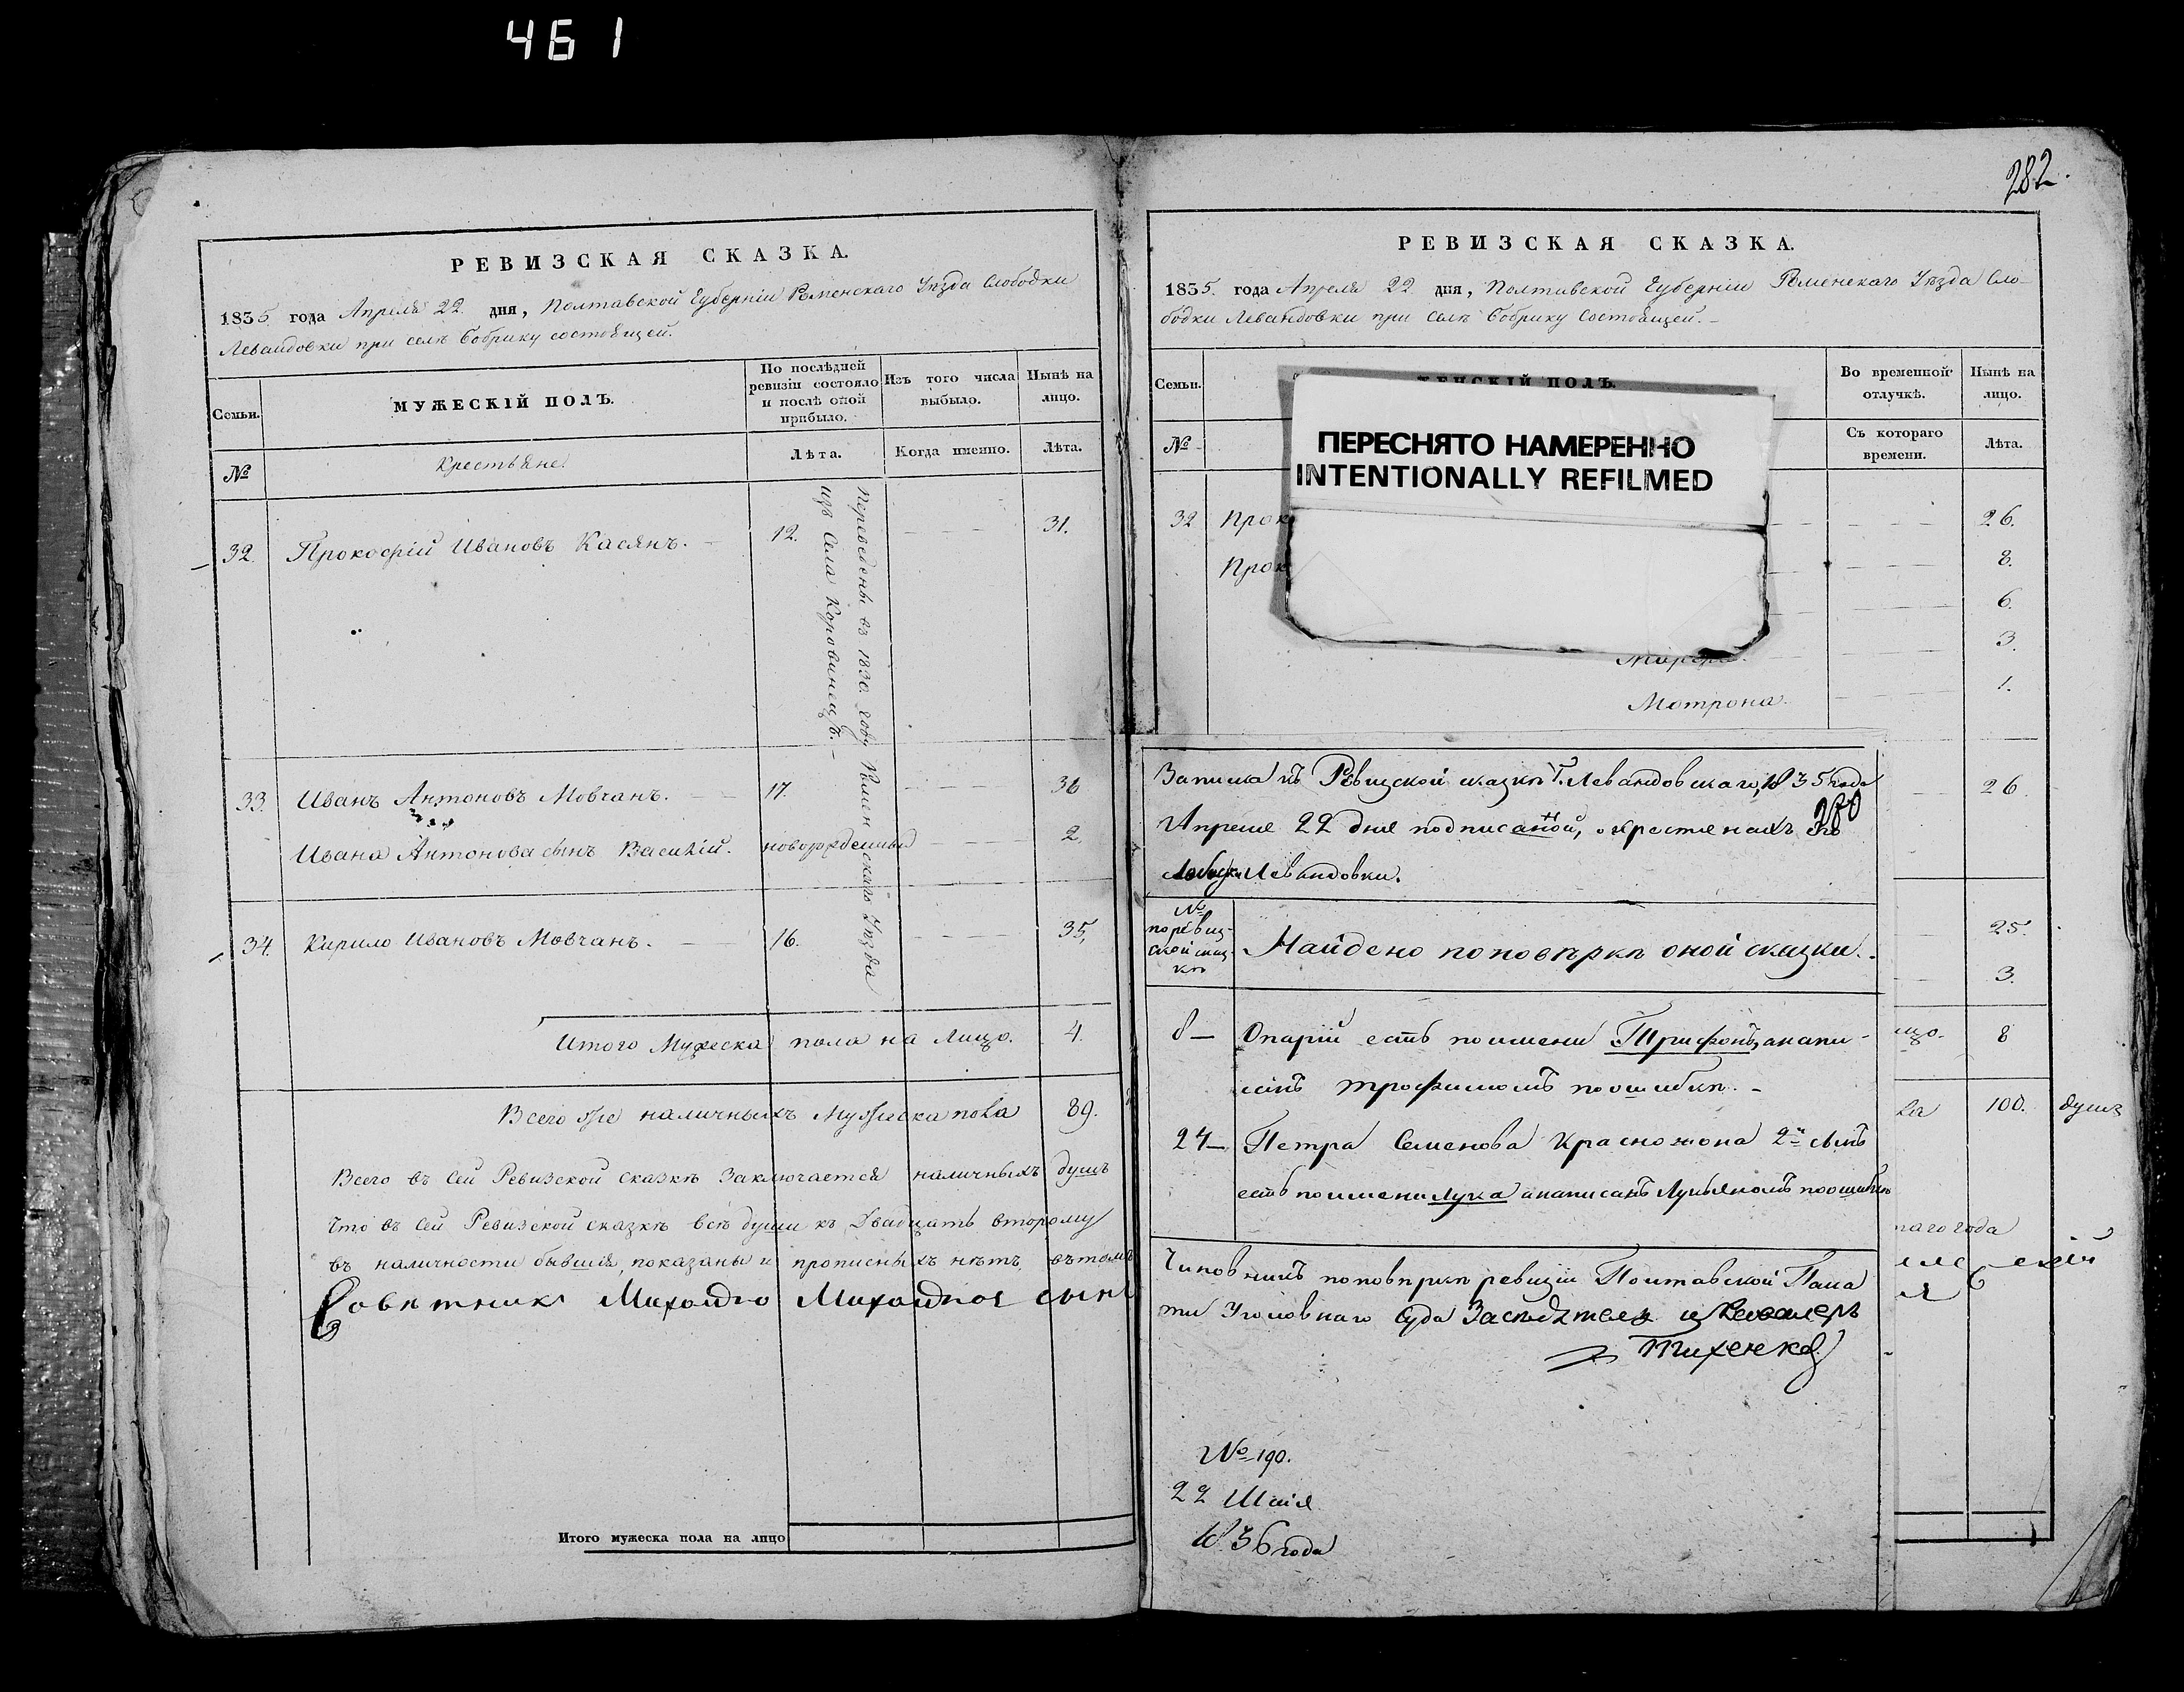 461
282.
РЕВИЗСКАЯ СКАЗКА.
1835 года Апреля 22 дня, Полтавской Губерніи Роменскаго Уѣзда Слободки
Левандовки при селѣ Бобрику состоящей.
Семьи.
МУЖЕСКІЙ ПОЛЪ.
По послѣдней ревизіи состояло и послѣ оной прибыло.
Изъ того числа выбыло.
Нынѣ на лицо.
№
Крестьяне.
Лѣта.
Когда именно.
Лѣта.
32. Прокофій Ивановъ Касянъ. 12. 31.
Переведены въ 1830. году Роменскаго Уѣзда
изъ Села Коровинецъ.
33. Иванъ Антоновъ Мовчанъ. 17. 36
Ивана Антонова сынъ Василій. новорожденный 2.
34. Кирило Ивановъ Мовчанъ. 16. 35,
Итого Мужеска пола на лицо. 4.
Всего же наличныхъ Мужеска пола 89.
Всего въ сей Ревизской сказкѣ Заключается наличныхъ душъ
Что въ сей Ревизской сказкѣ всѣ души къ Двадцать второму
въ наличности бывшія, показаны и прописныхъ нѣтъ, въ томъ
Совѣтникъ сынъ
Итого мужеска пола на лицо
РЕВИЗСКАЯ СКАЗКА.
1835. года Апреля 22 дня, Полтавской Губерніи Роменскаго Уѣзда Сло-
бодки Левандовки при селѣ Бобрику состоящей.
Семьи.
ЖЕНСКІЙ ПОЛЪ.
Во временной отлучкѣ.
Нынѣ на лицо.
№
Съ котораго времени.
Лѣта.
ПЕРЕСНЯТО НАМЕРЕННО
INTENTIONALLY REFILMED
32 Прок 26.
Прок 8.
6.
3.
1.
Мотрона.
26.
25.
3.
що. 8
ла 100. душъ
наго года
Записка къ Ревизской сказкѣ Г. Левандовскаго, 1835 года
Апреля 22 дня подписанной, о крестьянахъ
слободки Левандовки.
№ по ревизской сказкѣ
Найдено по повѣркѣ оной сказки.
8— Опарій есть по имени Трифонъ, а напи-
санъ трофимомъ по ошибкѣ.
24— Петра Семенова Красножона 2й сынъ
есть по имени Лука а написанъ Лукьяномъ по ошибкѣ
Чиновникъ по повѣркѣ ревизіи Полтавской Пала
ты Уголовнаго Суда Засѣдатель и Кавалеръ
№ 190.
22 Маія
1836 года